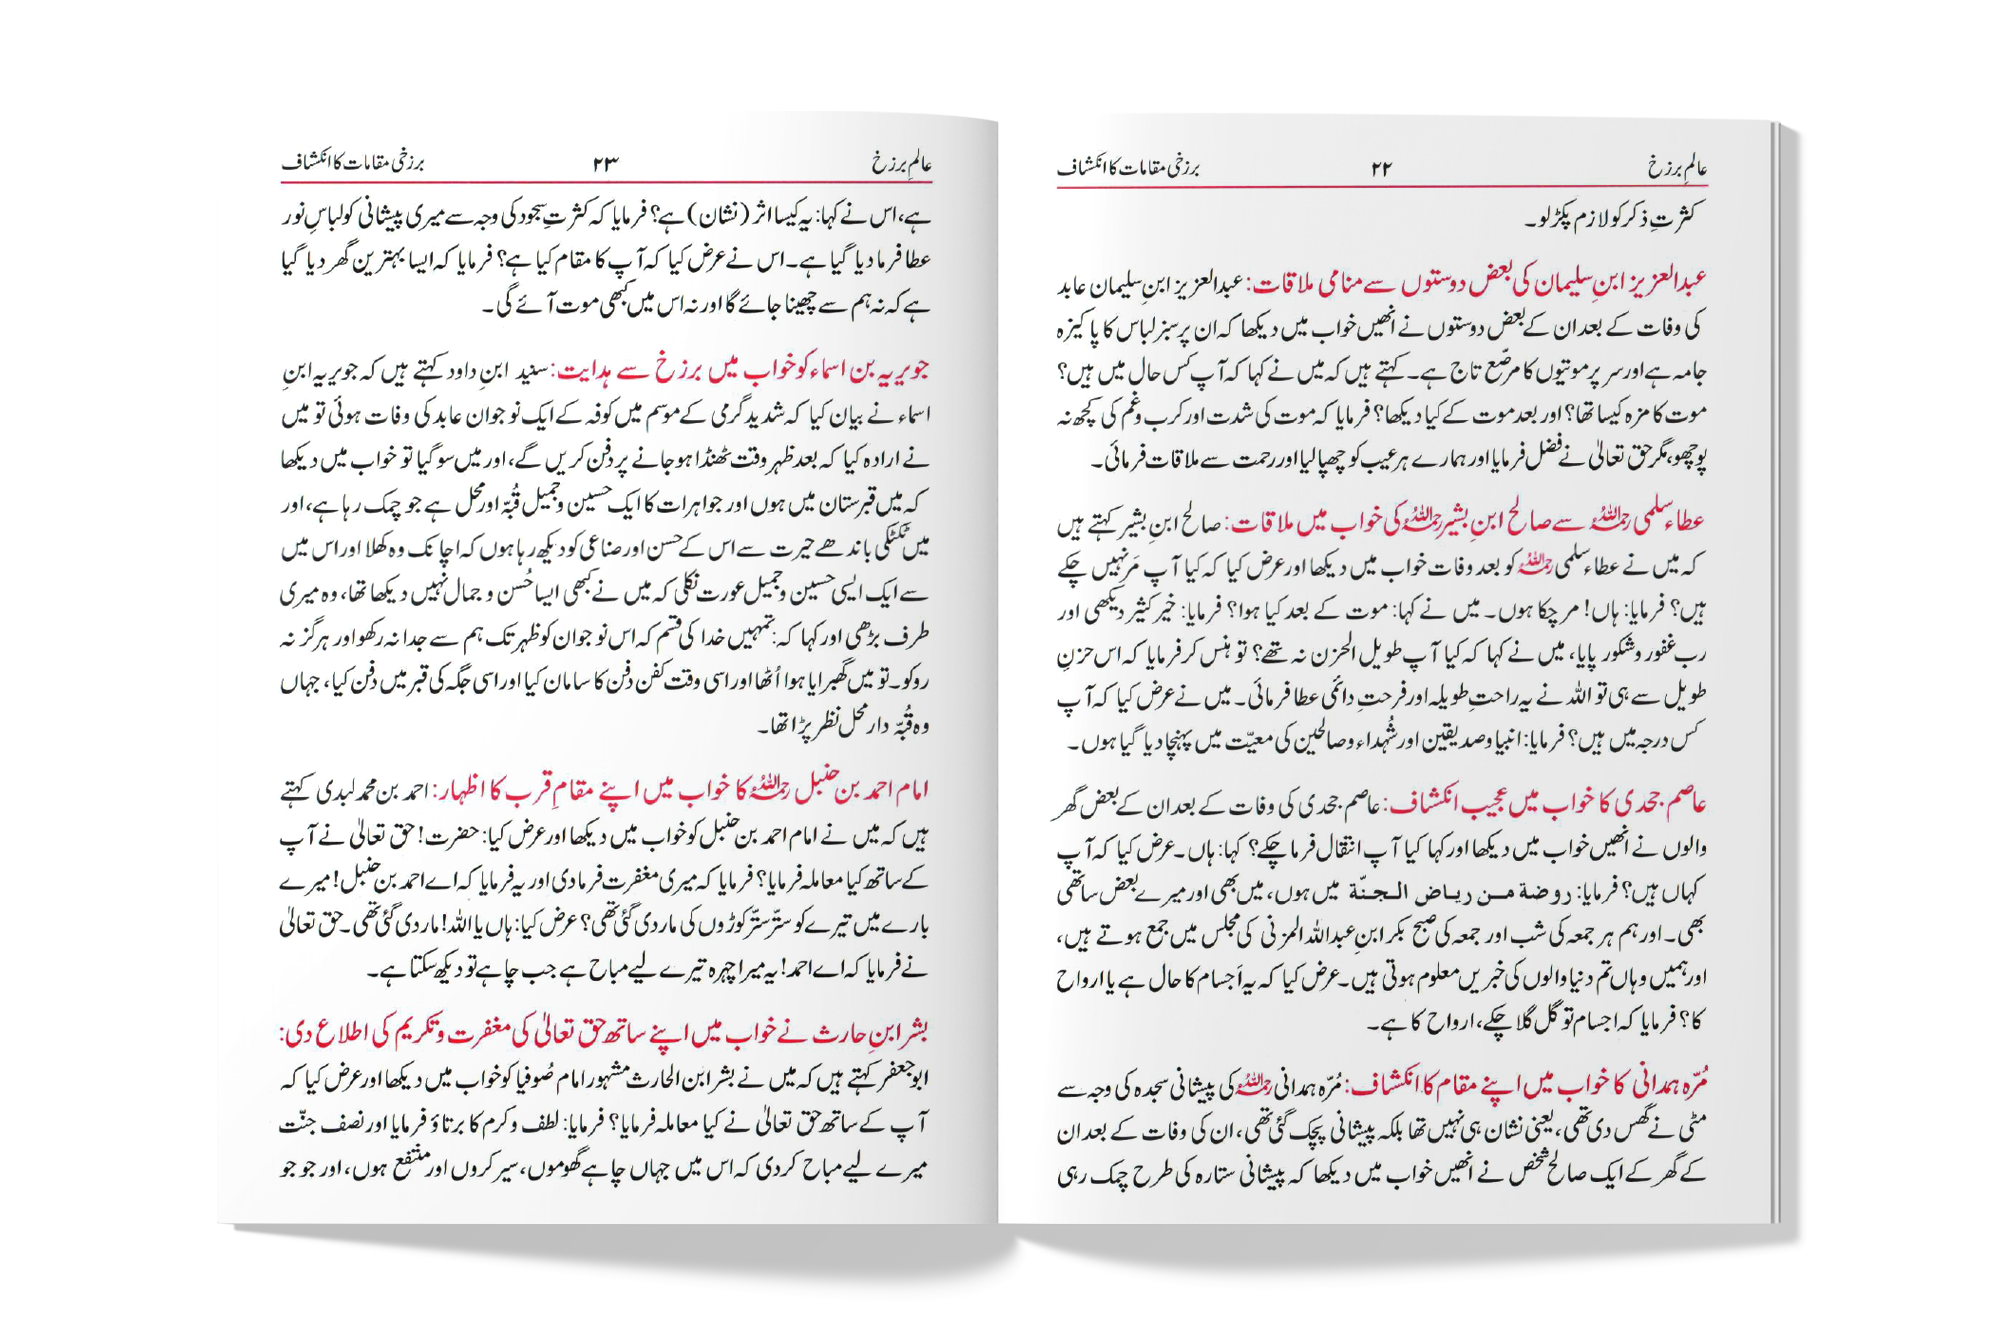 عالمِ برزخ ۲۲ برزخی مقامات کا انکشاف
کثرتِ ذکر کو لازم پکڑ لو۔
عبدالعزیز ابنِ سلیمان کی بعض دوستوں سے منامی ملاقات: عبدالعزیز ابنِ سلیمان عابد
کی وفات کے بعد ان کے بعض دوستوں نے انھیں خواب میں دیکھا کہ ان پر سبز لباس کا پاکیزہ
جامہ ہے اور سر پر موتیوں کا مرصّع تاج ہے۔ کہتے ہیں کہ میں نے کہا کہ آپ کس حال میں ہیں؟
موت کا مزہ کیسا تھا؟ اور بعد موت کے کیا دیکھا؟ فرمایا کہ موت کی شدت اور کرب و غم کی کچھ نہ
پوچھو، مگر حق تعالیٰ نے فضل فرمایا اور ہمارے ہر عیب کو چھپا لیا اور رحمت سے ملاقات فرمائی۔
عطاء سلمی رحمہ اللہ سے صالح ابنِ بشیر رحمہ اللہ کی خواب میں ملاقات: صالح ابنِ بشیر کہتے ہیں
کہ میں نے عطاء سلمی رحمہ اللہ کو بعد وفات خواب میں دیکھا اور عرض کیا کہ کیا آپ مَر نہیں چکے
ہیں؟ فرمایا: ہاں! مر چکا ہوں۔ میں نے کہا: موت کے بعد کیا ہوا؟ فرمایا: خیر کثیر دیکھی اور
رب غفور و شکور پایا، میں نے کہا کہ کیا آپ طویل الحزن نہ تھے؟ تو ہنس کر فرمایا کہ اس حزنِ
طویل سے ہی تو اللہ نے یہ راحتِ طویلہ اور فرحتِ دائمی عطا فرمائی۔ میں نے عرض کیا کہ آپ
کس درجہ میں ہیں؟ فرمایا: انبیا و صدیقین اور شُہداء و صالحین کی معیّت میں پہنچا دیا گیا ہوں۔
عاصم جحدی کا خواب میں عجیب انکشاف: عاصم جحدی کی وفات کے بعد ان کے بعض گھر
والوں نے انھیں خواب میں دیکھا اور کہا کیا آپ انتقال فرما چکے؟ کہا: ہاں۔ عرض کیا کہ آپ
کہاں ہیں؟ فرمایا: روضة من رياض الجنّة میں ہوں، میں بھی اور میرے بعض ساتھی
بھی۔ اور ہم ہر جمعہ کی شب اور جمعہ کی صبح بکر ابنِ عبداللہ المزنی کی مجلس میں جمع ہوتے ہیں،
اور ہمیں وہاں تم دنیا والوں کی خبریں معلوم ہوتی ہیں۔ عرض کیا کہ یہ اَجسام کا حال ہے یا ارواح
کا؟ فرمایا کہ اجسام تو گل گلا چکے، ارواح کا ہے۔
مُرّہ ہمدانی کا خواب میں اپنے مقام کا انکشاف: مُرّہ ہمدانی رحمہ اللہ کی پیشانی سجدہ کی وجہ سے
مٹی نے گھس دی تھی، یعنی نشان ہی نہیں تھا بلکہ پیشانی پچک گئی تھی، ان کی وفات کے بعد ان
کے گھر کے ایک صالح شخص نے انھیں خواب میں دیکھا کہ پیشانی ستارہ کی طرح چمک رہی
عالمِ برزخ ۲۳ برزخی مقامات کا انکشاف
ہے، اس نے کہا: یہ کیسا اثر (نشان) ہے؟ فرمایا کہ کثرتِ سجود کی وجہ سے میری پیشانی کو لباسِ نور
عطا فرما دیا گیا ہے۔ اس نے عرض کیا کہ آپ کا مقام کیا ہے؟ فرمایا کہ ایسا بہترین گھر دیا گیا
ہے کہ نہ ہم سے چھینا جائے گا اور نہ اس میں کبھی موت آئے گی۔
جویریہ بن اسماء کو خواب میں برزخ سے ہدایت: سنید ابنِ داود کہتے ہیں کہ جویریہ ابنِ
اسماء نے بیان کیا کہ شدید گرمی کے موسم میں کوفہ کے ایک نوجوان عابد کی وفات ہوئی تو میں
نے ارادہ کیا کہ بعد ظہر وقت ٹھنڈا ہو جانے پر دفن کریں گے، اور میں سو گیا تو خواب میں دیکھا
کہ میں قبرستان میں ہوں اور جواہرات کا ایک حسین و جمیل قُبّہ اور محل ہے جو چمک رہا ہے، اور
میں ٹکٹکی باندھے حیرت سے اس کے حسن اور صناعی کو دیکھ رہا ہوں کہ اچانک وہ کھلا اور اس میں
سے ایک ایسی حسین و جمیل عورت نکلی کہ میں نے کبھی ایسا حُسن و جمال نہیں دیکھا تھا، وہ میری
طرف بڑھی اور کہا کہ: تمہیں خدا کی قسم کہ اس نوجوان کو ظہر تک ہم سے جدا نہ رکھو اور ہرگز نہ
روکو۔ تو میں گھبرایا ہوا اُٹھا اور اسی وقت کفن دفن کا سامان کیا اور اسی جگہ کی قبر میں دفن کیا، جہاں
وہ قُبّہ دار محل نظر پڑا تھا۔
امام احمد بن حنبل رحمہ اللہ کا خواب میں اپنے مقامِ قرب کا اظہار: احمد بن محمد لبدی کہتے
ہیں کہ میں نے امام احمد بن حنبل کو خواب میں دیکھا اور عرض کیا: حضرت! حق تعالیٰ نے آپ
کے ساتھ کیا معاملہ فرمایا؟ فرمایا کہ میری مغفرت فرما دی اور یہ فرمایا کہ اے احمد بن حنبل! میرے
بارے میں تیرے کو ستّر ستّر کوڑوں کی مار دی گئی تھی؟ عرض کیا: ہاں یا اللہ! مار دی گئی تھی۔ حق تعالیٰ
نے فرمایا کہ اے احمد! یہ میرا چہرہ تیرے لیے مباح ہے جب چاہے تو دیکھ سکتا ہے۔
بشر ابنِ حارث نے خواب میں اپنے ساتھ حق تعالیٰ کی مغفرت و تکریم کی اطلاع دی:
ابو جعفر کہتے ہیں کہ میں نے بشر ابن الحارث مشہور امام صُوفیا کو خواب میں دیکھا اور عرض کیا کہ
آپ کے ساتھ حق تعالیٰ نے کیا معاملہ فرمایا؟ فرمایا: لطف و کرم کا برتاؤ فرمایا اور نصف جنّت
میرے لیے مباح کر دی کہ اس میں جہاں چاہے گھوموں، سیر کروں اور منتفع ہوں، اور جو جو